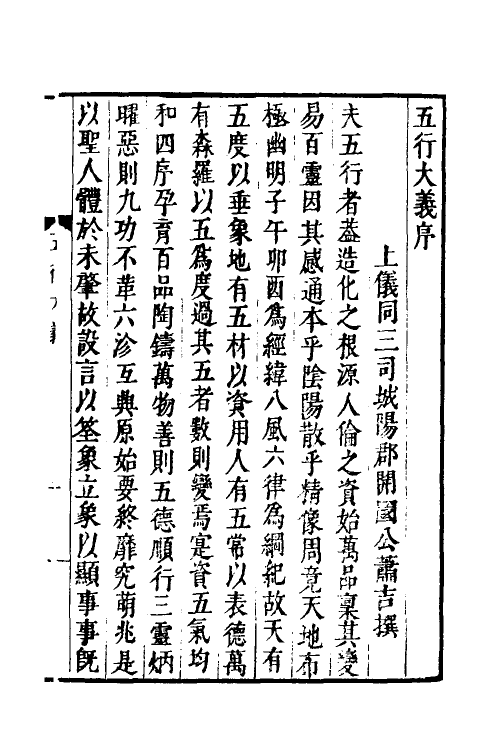 五行大義序
上儀同三司城陽郡開國公蕭吉撰
夫五行者葢造化之根源人倫之資始萬品稟其變
易百靈因其感通本乎陰陽散乎精像周竟天地布
極幽明子午卯酉爲經緯八風六律爲綱紀故天有
五度以垂象地有五材以資用人有五常以表德萬
有森羅以五爲度過其五者數則變焉寔資五氣均
和四序孕育百品陶鑄萬物善則五德順行三靈炳
曜惡則九功不革六沴互興原始要終靡究萌兆是
以聖人體於未肇故設言以筌象立象以顯事事旣
五行大義